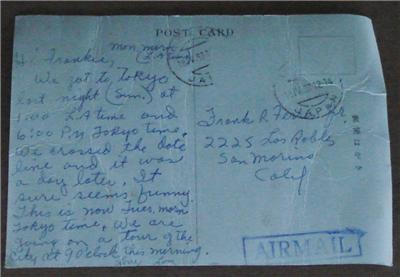 POST CARD
mon morn
(L.A. time)
Hi Frankie,
We got to Tokyo
last night (Sun.) at
1:00 L.A time and
6:00 P.M Tokyo time.
We crossed the date
line and it was
a day later. It
sure seems funny
This is now Tues, morn
Tokyo time. We are
going on a tour of the
city at 9 o'clock this morning.
Love
Frank R. Jr
2225 Los Robles
San Marino
Calif
AIRMAIL